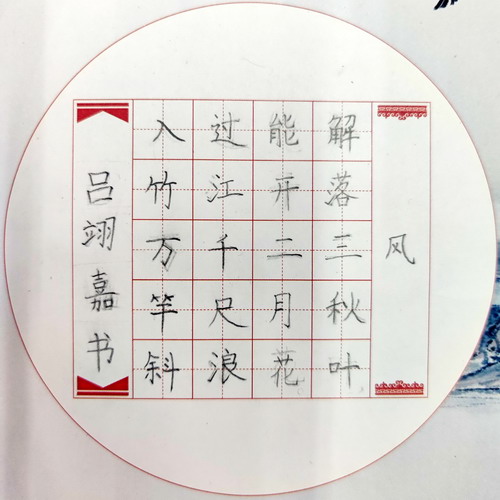 风
解落三秋叶
能开二月花
过江千尺浪
入竹万竿斜
吕翊嘉书